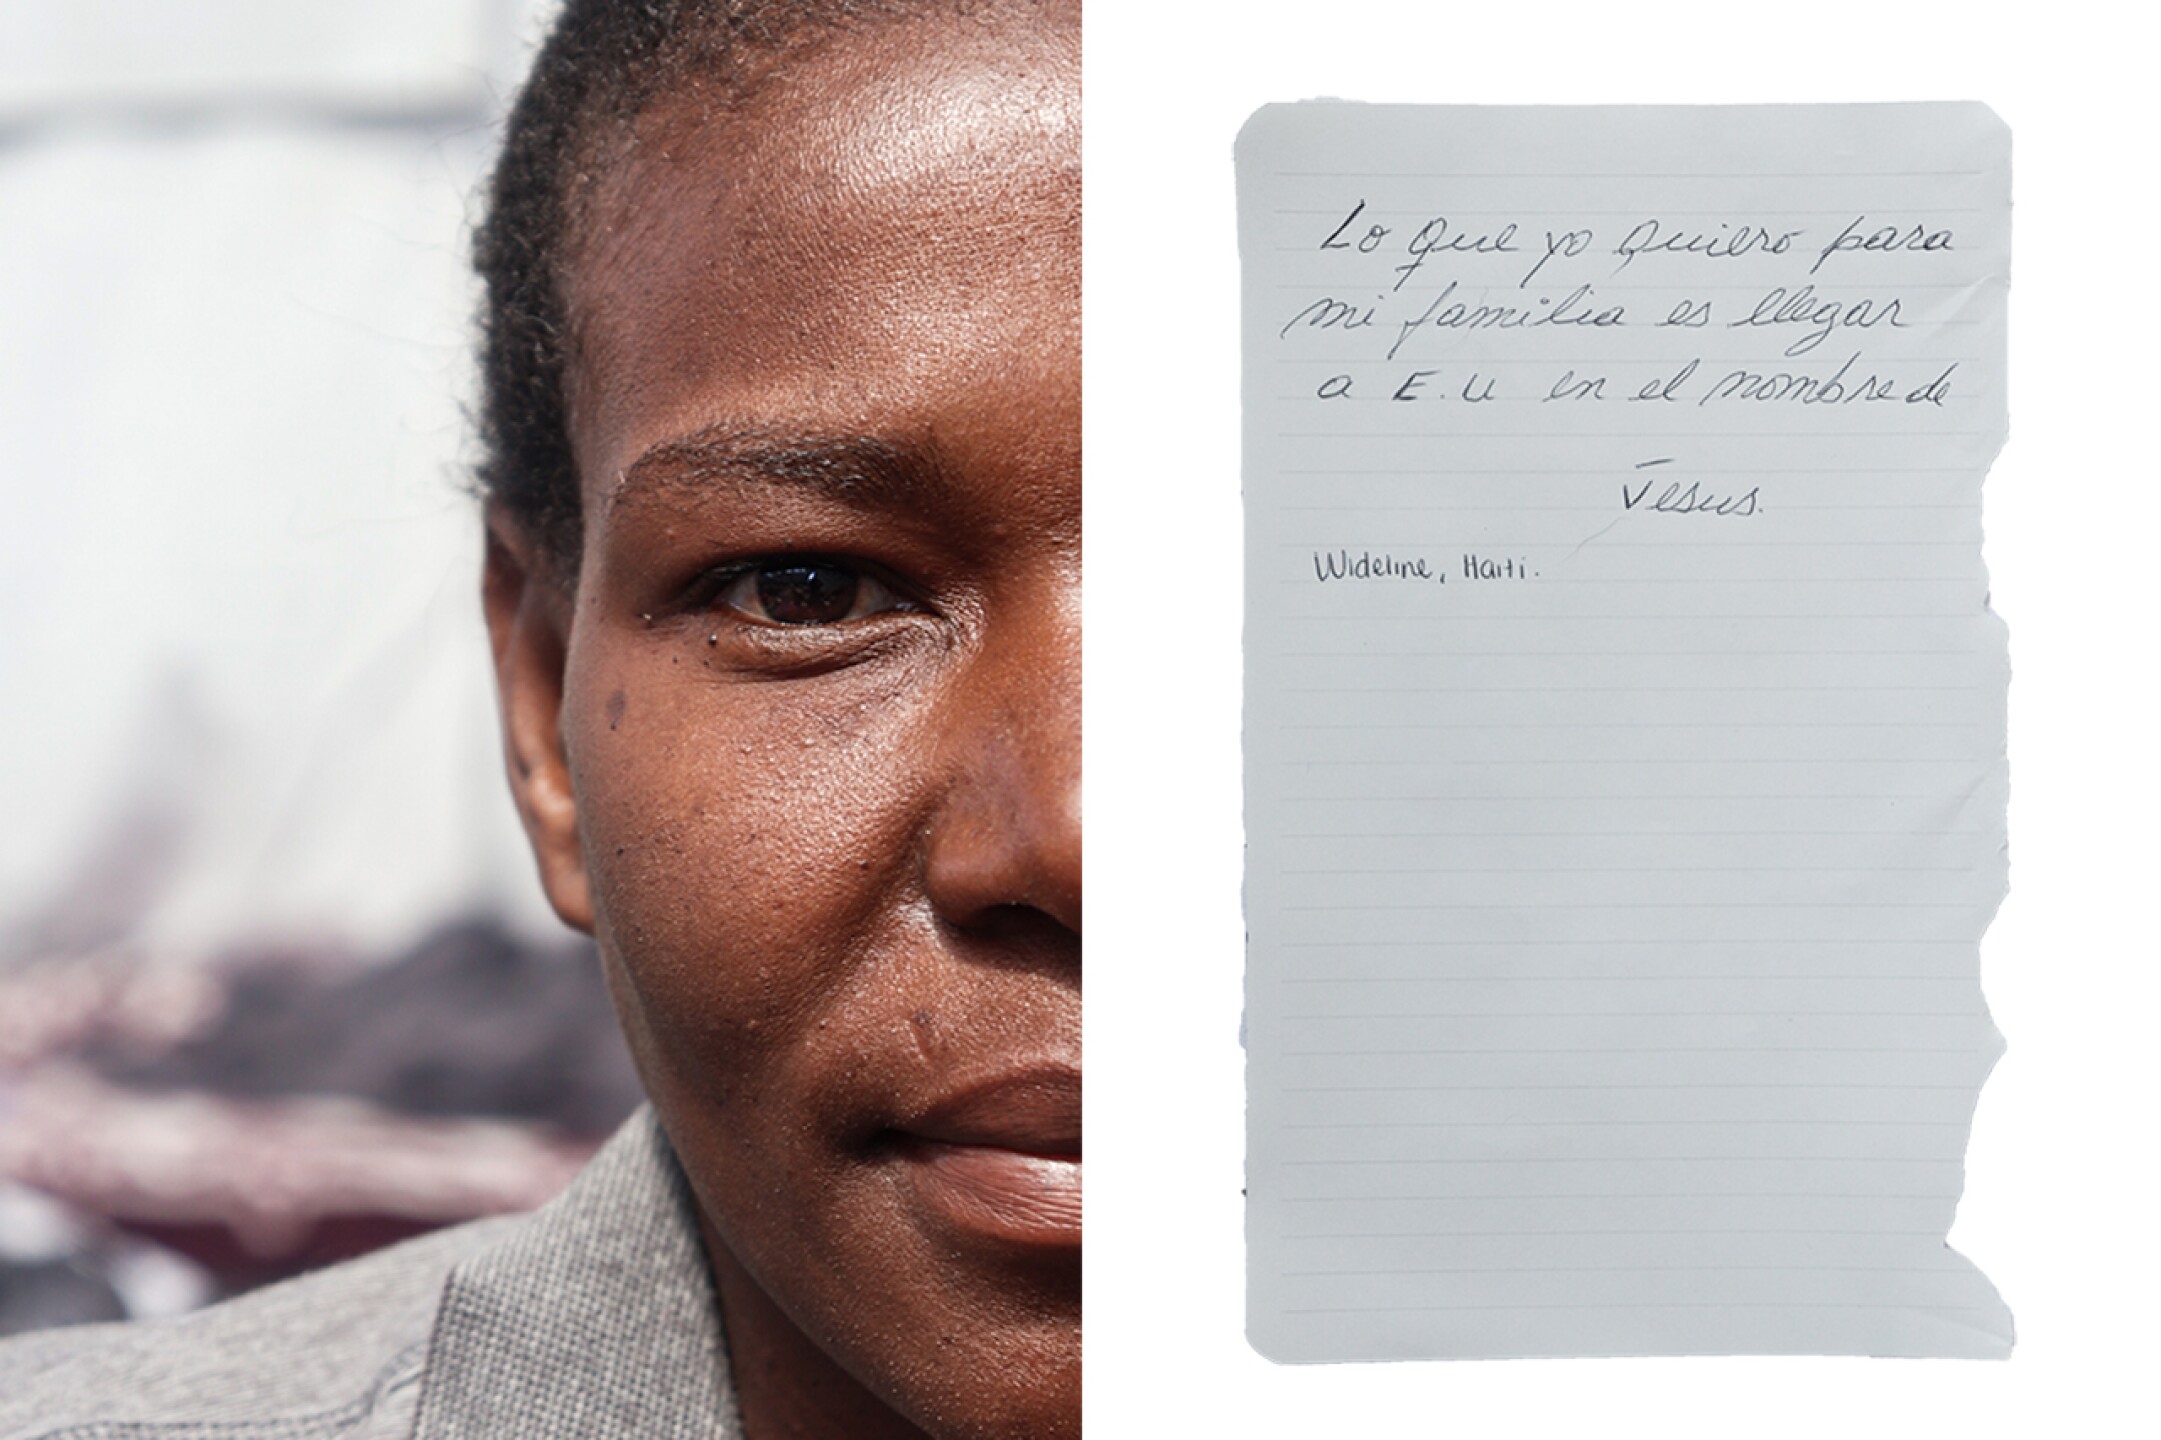 Lo Que yo Quiero para
mi familia es llegar
a E.U en el nombre de
Jesus.
Wideline, Haiti.